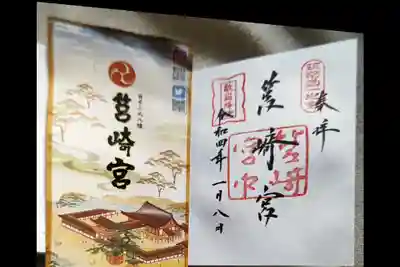 筥崎宮
奉拝
筥崎宮
令和四年一月八日
敵国降伏
筥崎宮印